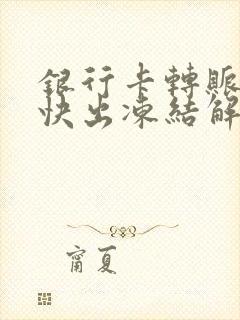 銀行卡轉賬
快出凍結解
甯夏